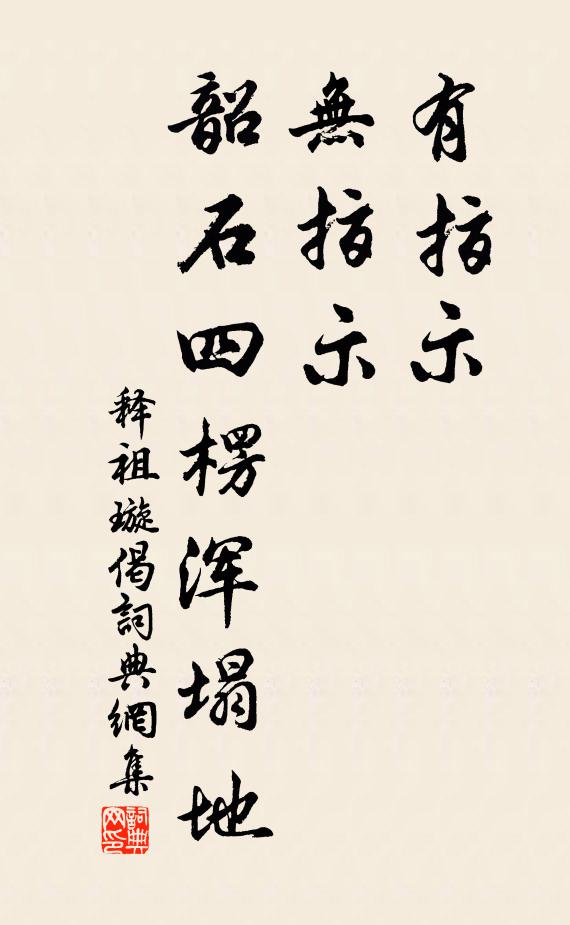 有指示
無指示
韶石四楞浑塌地
释祖璇偈詞典網集
詞典网印